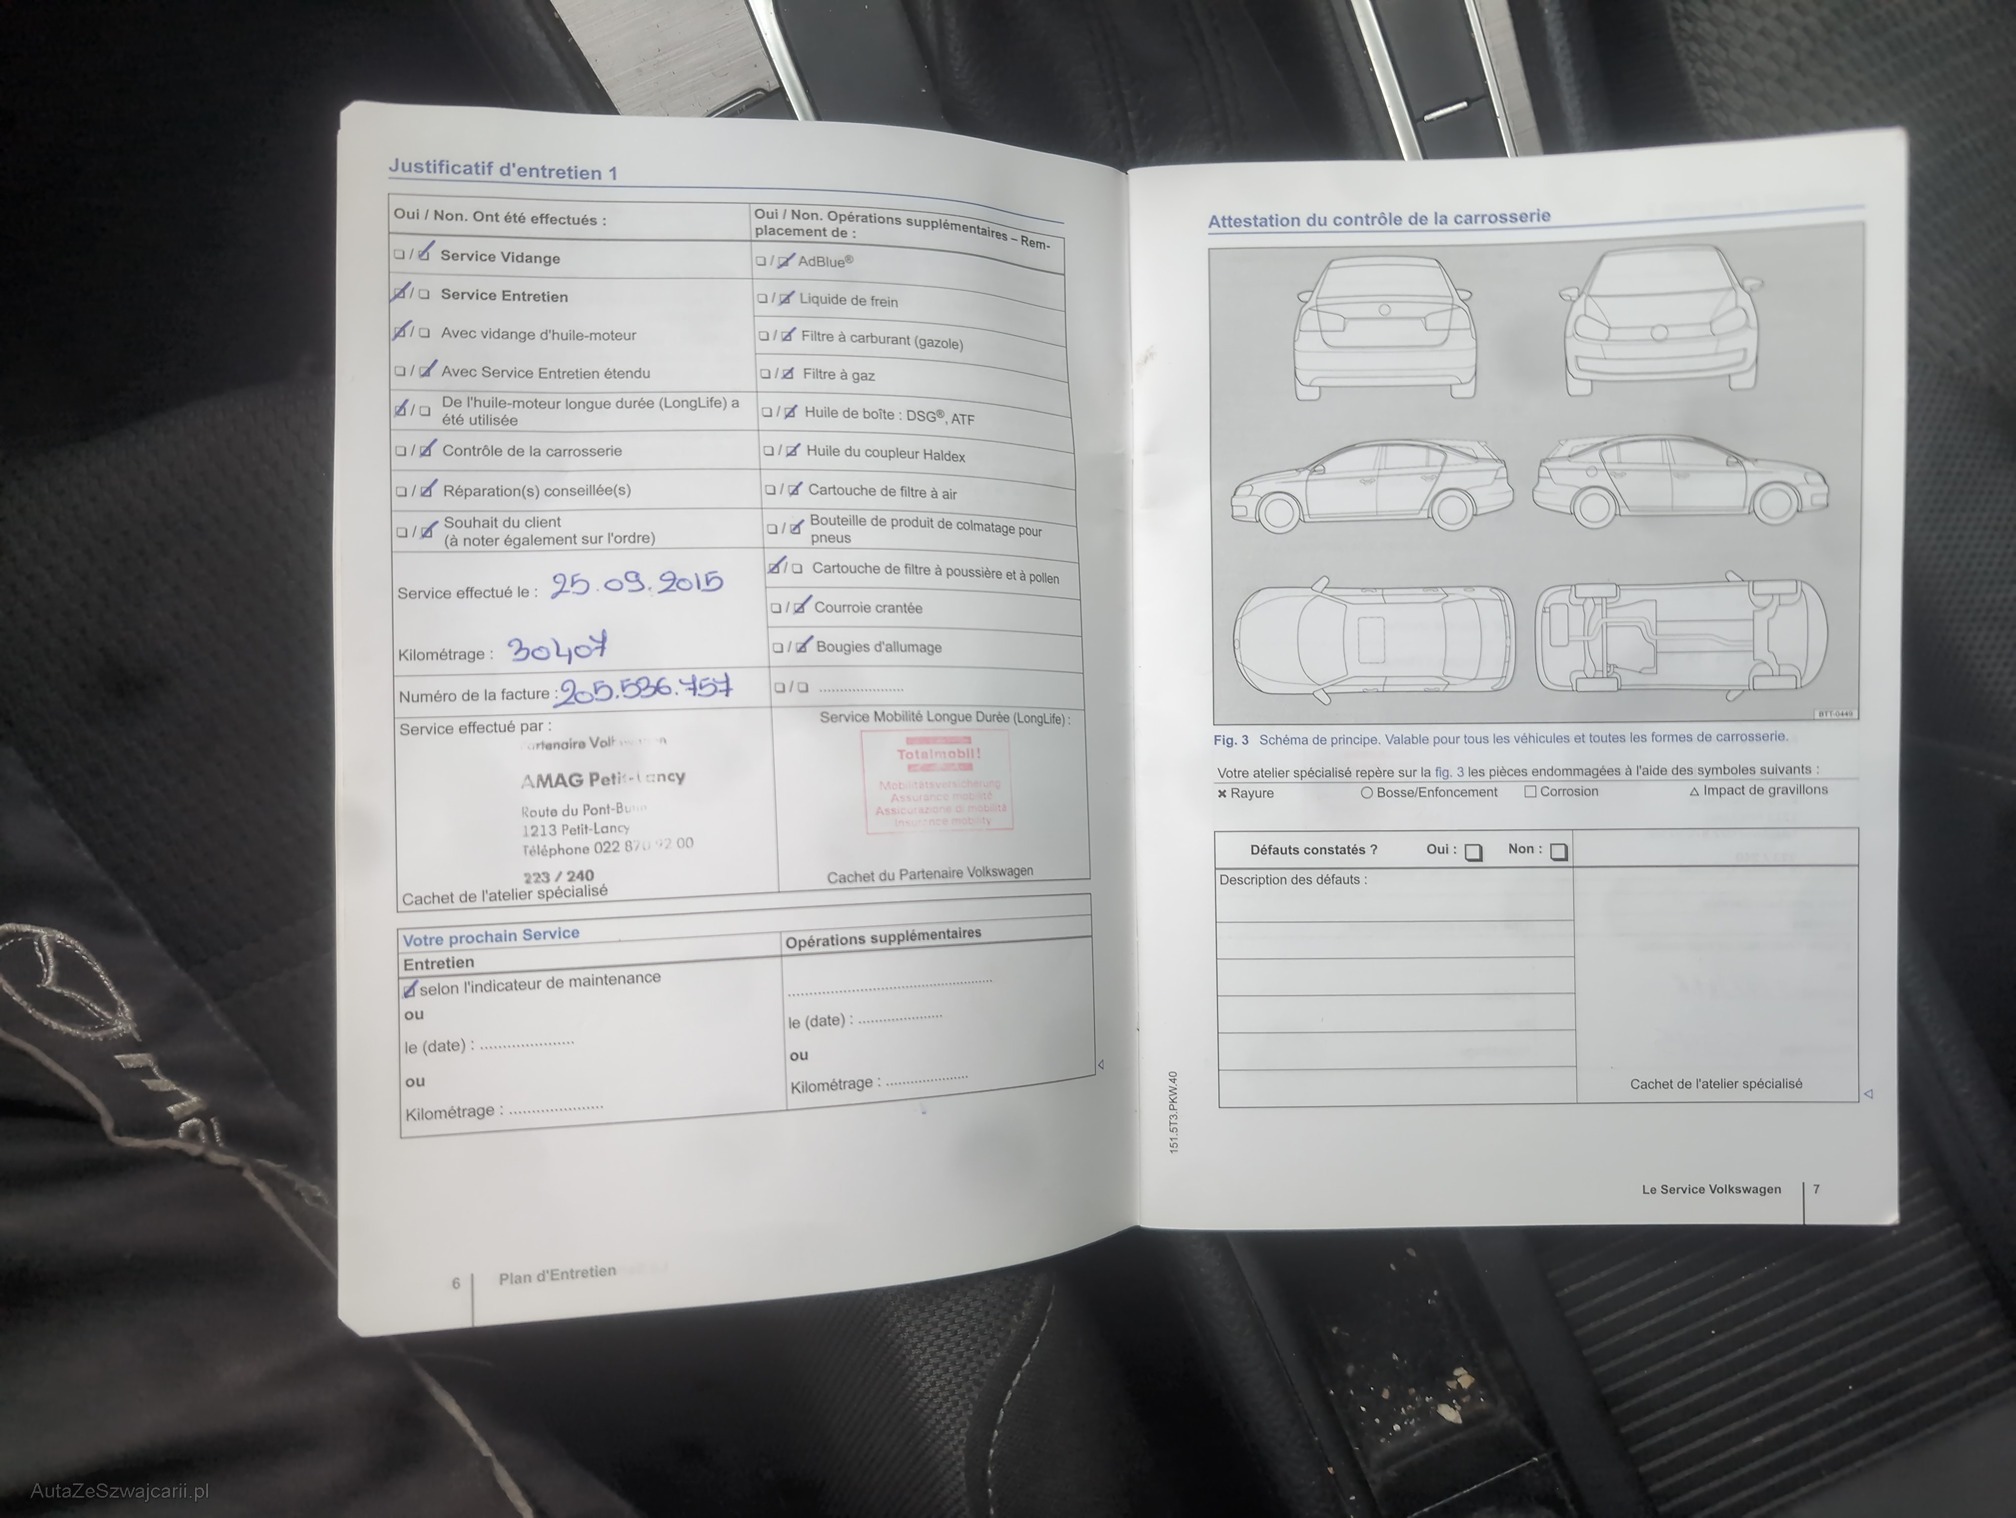 Justificatif d'entretien 1
Oui / Non. Ont été effectués :
❏ / ☑ Service Vidange
☑ / ❏ Service Entretien
☑ / ❏ Avec vidange d'huile-moteur
❏ / ☑ Avec Service Entretien étendu
☑ / ❏ De l'huile-moteur longue durée (LongLife) a
été utilisée
❏ / ☑ Contrôle de la carrosserie
❏ / ☑ Réparation(s) conseillée(s)
❏ / ☑ Souhait du client
(à noter également sur l'ordre)
Service effectué le : 25.09.2015
Kilométrage : 30407
Numéro de la facture : 205.536.757
Service effectué par :
AMAG Petit-Lancy
Route du
1213 Petit-Lancy
Téléphone 022
223 / 240
Cachet de l'atelier spécialisé
Oui / Non. Opérations supplémentaires – Rem-
placement de :
❏ / ☑ AdBlue®
❏ / ☑ Liquide de frein
❏ / ☑ Filtre à carburant (gazole)
❏ / ☑ Filtre à gaz
❏ / ☑ Huile de boîte : DSG®, ATF
❏ / ☑ Huile du coupleur Haldex
❏ / ☑ Cartouche de filtre à air
❏ / ☑ Bouteille de produit de colmatage pour
pneus
☑ / ❏ Cartouche de filtre à poussière et à pollen
❏ / ☑ Courroie crantée
❏ / ☑ Bougies d'allumage
❏ / ❏ .....................
Service Mobilité Longue Durée (LongLife) :
Totalmobil!
Mobilitätsversicherung
Assurance mobilité
Assicurazione di mobilità
Insurance mobility
Cachet du Partenaire Volkswagen
Votre prochain Service
Entretien
☑ selon l'indicateur de maintenance
ou
le (date) : .....................
ou
Kilométrage : .....................
Opérations supplémentaires
..............................................
le (date) : .....................
ou
Kilométrage : .....................
6 Plan d'Entretien
Attestation du contrôle de la carrosserie
BTT-0449
Fig. 3 Schéma de principe. Valable pour tous les véhicules et toutes les formes de carrosserie.
Votre atelier spécialisé repère sur la fig. 3 les pièces endommagées à l'aide des symboles suivants :
× Rayure ○ Bosse/Enfoncement □ Corrosion △ Impact de gravillons
Défauts constatés ? Oui : ❏ Non : ❏
Description des défauts :
Cachet de l'atelier spécialisé
151.5T3.PKW.40
Le Service Volkswagen 7
AutaZeSzwajcarii.pl